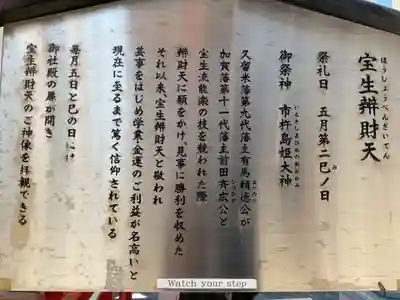 ほうしょうべんざいてん
宝生辨財天
祭礼日 五月第二巳ノ日
み
御祭神 市杵島姫大神
いちきしまひめのおおかみ
久留米藩第九代藩主有馬頼徳公が
加賀藩第十一代藩主前田斉広公と
宝生流能楽の技を競われた際
辨財天に願をかけ、見事に勝利を収めた
それ以来、宝生辨財天と敬われ
芸事をはじめ学業金運のご利益が名高いと
現在に至るまで篤く信仰されている
毎月五日と巳の日には
御社殿の扉が開き
宝生辨財天のご神像を拝観できる
Watch your step